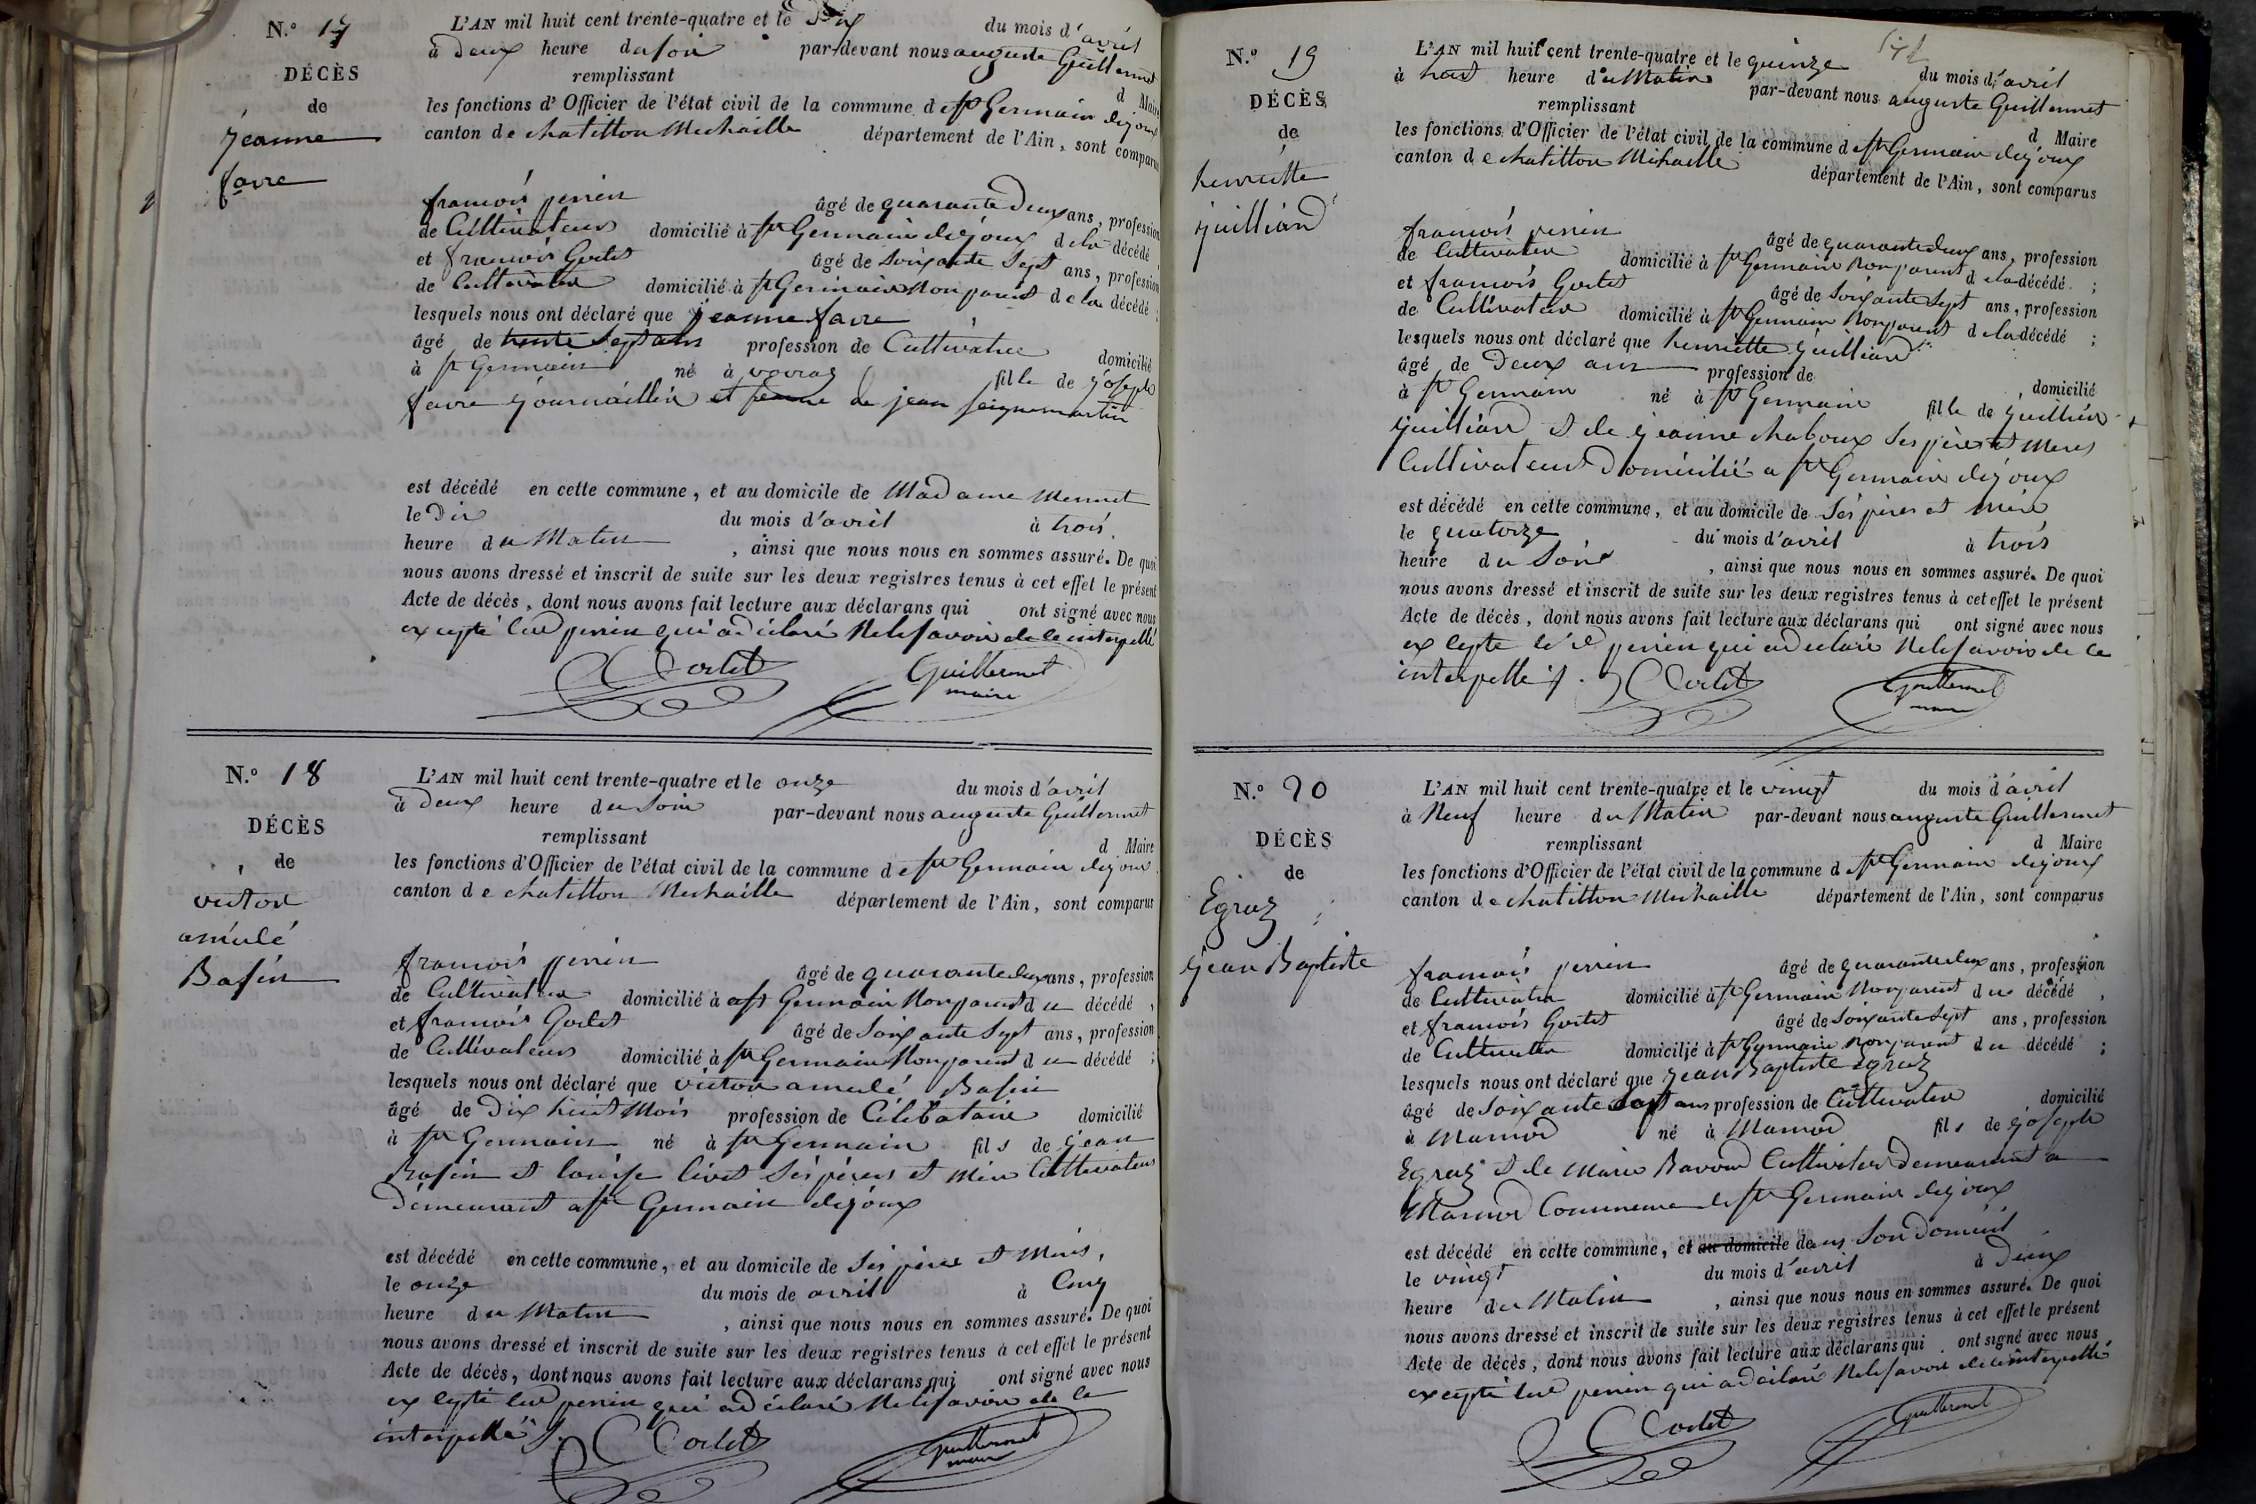 N.° 17
DÉCÈS
de
jeanne
favre
L'AN mil huit cent trente-quatre et le Dix du mois d'avril
à Deux heure du soir par-devant nous auguste Guillermet
remplissant d Maire
les fonctions d'Officier de l'état civil de la commune de st Germain dejoux
canton de chatillon Michaille département de l'Ain, sont comparus
francois perrin âgé de quarante Deux ans, profession
de Cultivateur domicilié à st Germain dejoux de la décédé
et francois Godet âgé de Soixante Sept ans, profession
de Cultivateur domicilié à st Germain Non parent de la décédé ;
lesquels nous ont déclaré que jeanne favre
âgé de trente Sept ans profession de Cultivatrice domicilié
à st Germain né à fille de joseph
favre journaillier et femme de jean seignemartin
est décédé en cette commune, et au domicile de Madame Mermet
le Dix du mois d'avril à trois
heure du Matin, ainsi que nous nous en sommes assuré. De quoi
nous avons dressé et inscrit de suite sur les deux registres tenus à cet effet le présent
Acte de décès, dont nous avons fait lecture aux déclarans qui ont signé avec nous
excepté led perrin qui a déclaré Ne le savoir de ce interpellé
Godet Guillermet
maire
N.° 18
DÉCÈS
de
victor
amédé
Basin
L'AN mil huit cent trente-quatre et le onze du mois d'avril
à Deux heure du Soir par-devant nous auguste Guillermet
remplissant d Maire
les fonctions d'Officier de l'état civil de la commune de st Germain dejoux
canton de chatillon Michaille département de l'Ain, sont comparus
francois perrin âgé de quarante deux ans, profession
de Cultivateur domicilié à a st Germain Non parent du décédé ,
et francois Godet âgé de Soixante Sept ans, profession
de Cultivateur domicilié à st Germain Non parent du décédé ;
lesquels nous ont déclaré que victor amédé Basin
âgé de Dix huit Mois profession de Célibataire domicilié
à st Germain né à st Germain fils de jean
Basin et louise livet Ses pères et Mère Cultivateurs
Demeurant a st Germain dejoux
est décédé en cette commune, et au domicile de Ses pères et Mères,
le onze du mois de avril à Cinq
heure du Matin, ainsi que nous nous en sommes assuré. De quoi
nous avons dressé et inscrit de suite sur les deux registres tenus à cet effet le présent
Acte de décès, dont nous avons fait lecture aux déclarans qui ont signé avec nous
excepté led perrin qui a déclaré Ne le savoir de ce
interpellé
Godet Guillermet
maire
N.° 19
DÉCÈS
de
henriette
juilliard
L'AN mil huit cent trente-quatre et le quinze du mois d'avril
à heure du Matin par-devant nous auguste Guillermet
remplissant d Maire
les fonctions d'Officier de l'état civil de la commune de st Germain dejoux
canton de chatillon Michaille département de l'Ain, sont comparus
francois perrin âgé de quarante deux ans, profession
de Cultivateur domicilié à st Germain Non parent de la décédé ;
et francois Godet âgé de Soixante Sept ans, profession
de Cultivateur domicilié à st Germain Non parent de la décédé ;
lesquels nous ont déclaré que henriette juilliard
âgé de Deux ans profession de , domicilié
à st Germain né à st Germain fille de
juilliard et de jeanne chaboux Ses pères et Mères
Cultivateurs Domicilié a st Germain dejoux
est décédé en cette commune, et au domicile de Ses pères et Mère
le quatorze du mois d'avril à trois
heure du Soir, ainsi que nous nous en sommes assuré. De quoi
nous avons dressé et inscrit de suite sur les deux registres tenus à cet effet le présent
Acte de décès, dont nous avons fait lecture aux déclarans qui ont signé avec nous
excepté led perrin qui a déclaré Ne le savoir de ce
interpellé
Godet Guillermet
maire
N.° 20
DÉCÈS
de
Egraz
jean Baptiste
L'AN mil huit cent trente-quatre et le vingt du mois d'avril
à Neuf heure du Matin par-devant nous auguste Guillermet
remplissant d Maire
les fonctions d'Officier de l'état civil de la commune de st Germain dejoux
canton de chatillon Michaille département de l'Ain, sont comparus
francois perrin âgé de quarante deux ans, profession
de Cultivateur domicilié à st Germain Non parent du décédé ,
et francois Godet âgé de Soixante Sept ans, profession
de Cultivateur domicilié à st Germain Non parent du décédé ;
lesquels nous ont déclaré que jean Baptiste Egraz
âgé de Soixante Sept ans profession de Cultivateur domicilié
à Marnod né à Marnod fils de joseph
Egraz et de Marie Cultivateurs Demeurant a
Marnod Commune de st Germain dejoux
est décédé en cette commune, et au domicile dans Son Domicil
le vingt du mois d'avril à Deux
heure du Matin, ainsi que nous nous en sommes assuré. De quoi
nous avons dressé et inscrit de suite sur les deux registres tenus à cet effet le présent
Acte de décès, dont nous avons fait lecture aux déclarans qui ont signé avec nous
excepté led perrin qui a déclaré Ne le savoir de ce interpellé
Godet Guillermet